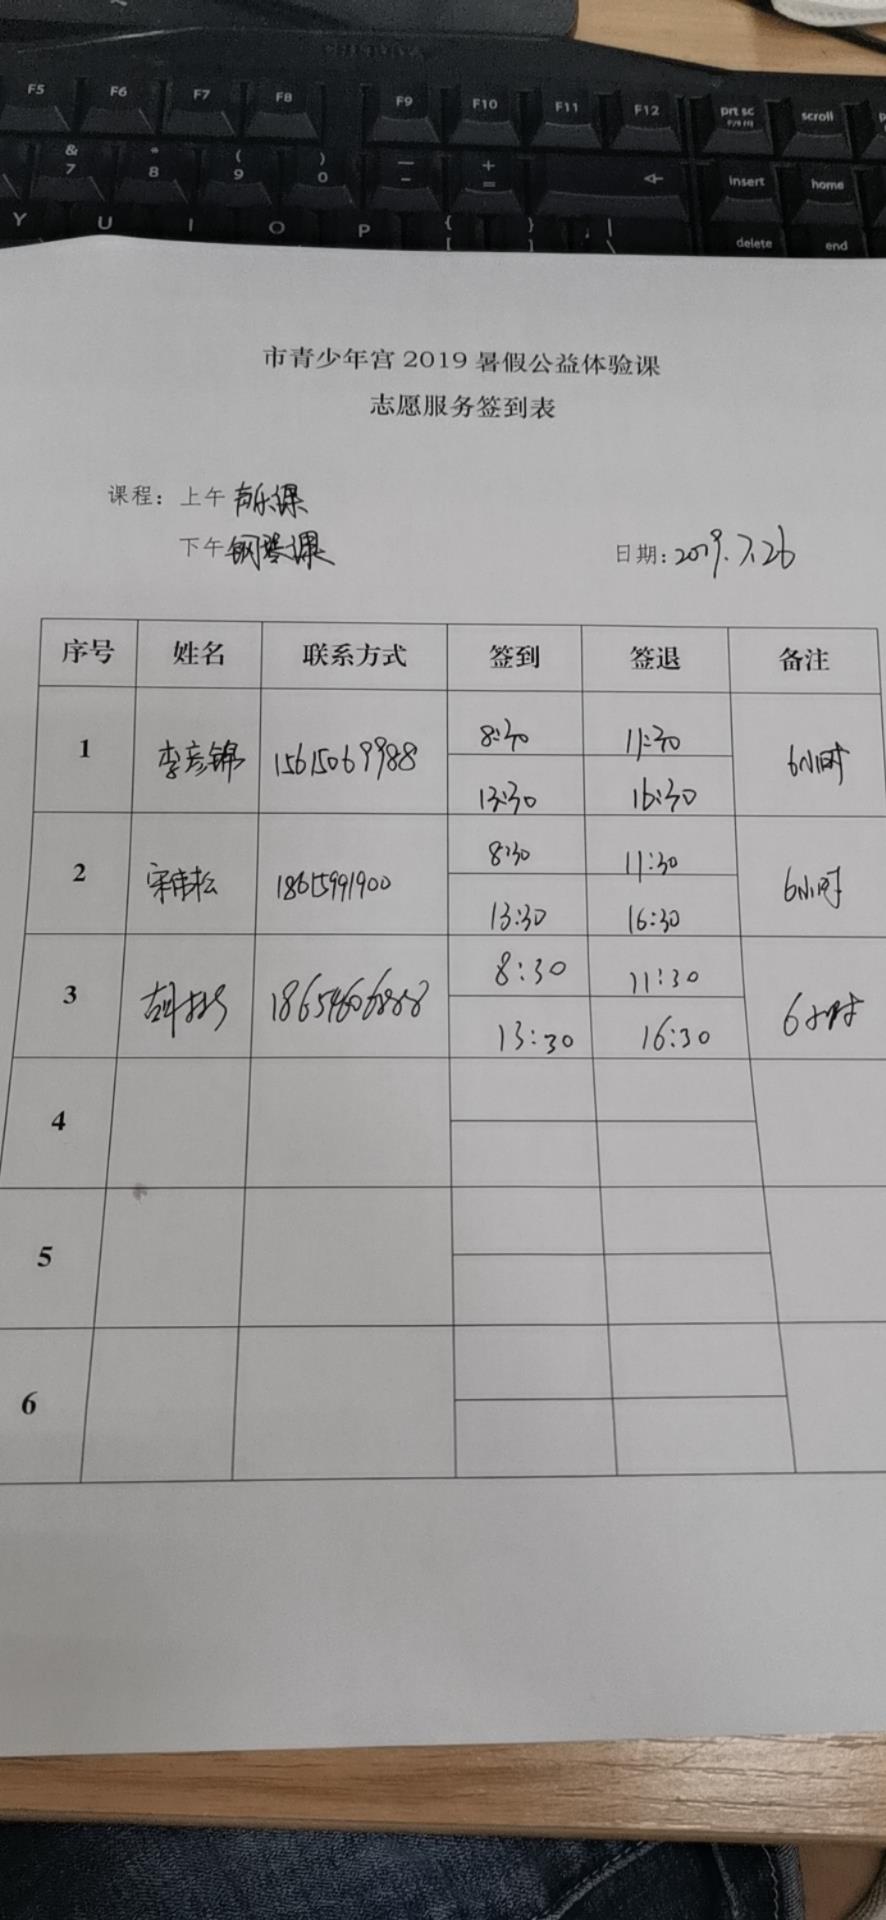 F5 F6 F7 F8 F9 F10 F11 F12 prt sc scroll
& * ( ) — +
7 8 9 0 - = insert home
Y U I O P { } |
[ ] \ delete end
市青少年宫 2019 暑假公益体验课
志愿服务签到表
课程：上午 声乐课
下午 钢琴课 日期：2019.7.26
序号 姓名 联系方式 签到 签退 备注
1 李彦锦 15615069988 8:30 11:30 6小时
13:30 16:30
2 宋伟松 18615991900 8:30 11:30 6小时
13:30 16:30
3 胡 18654606888 8:30 11:30 6小时
13:30 16:30
4
5
6